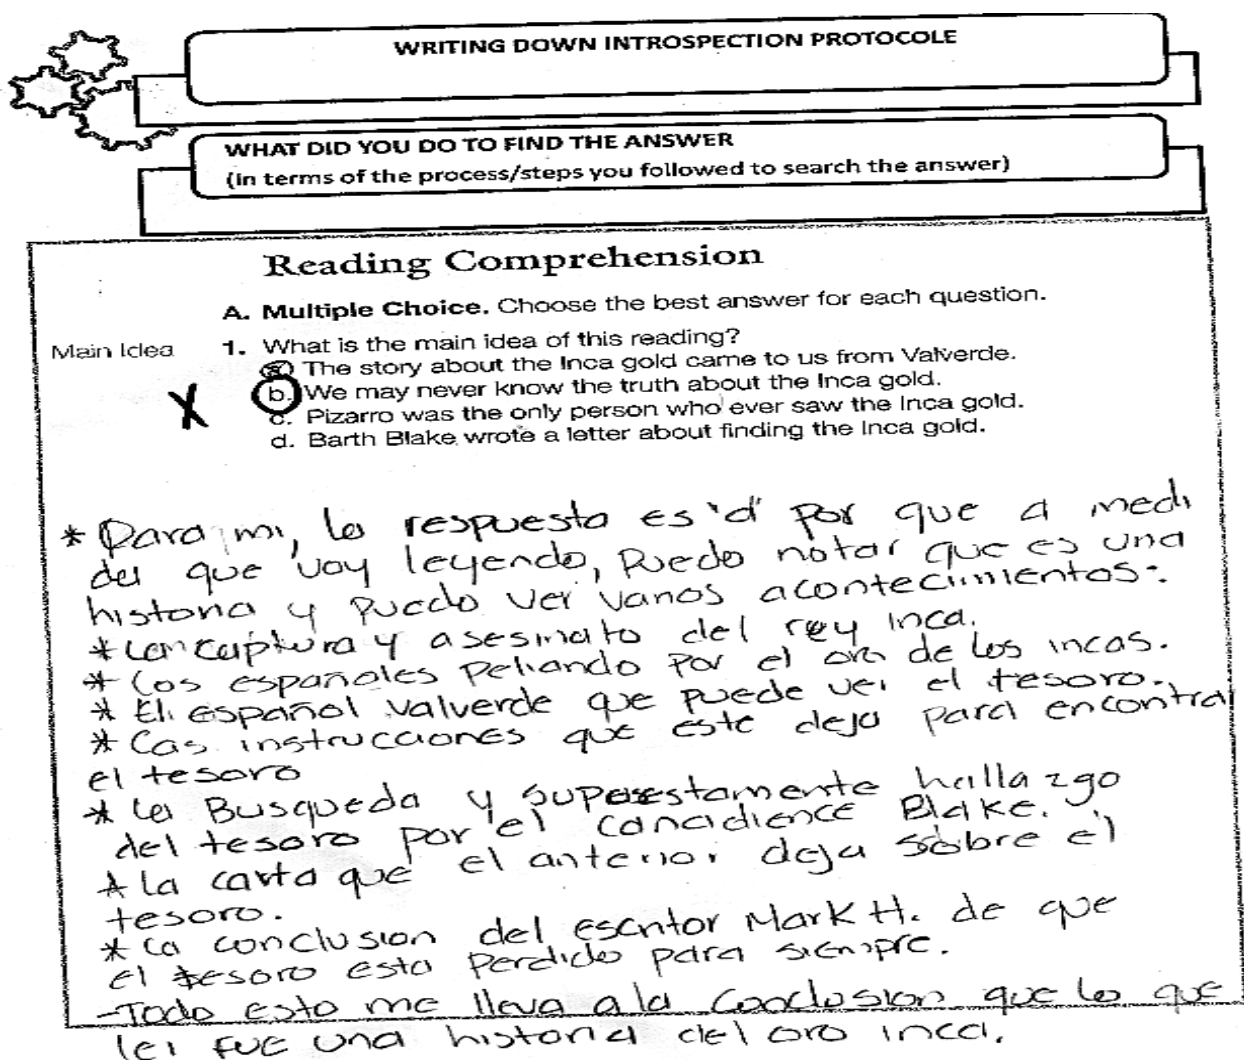 WRITING DOWN INTROSPECTION PROTOCOLE
WHAT DID YOU DO TO FIND THE ANSWER
(in terms of the process/steps you followed to search the answer)
Reading Comprehension
A. Multiple Choice. Choose the best answer for each question.
Main Idea 1. What is the main idea of this reading?
a. The story about the Inca gold came to us from Valverde.
X b. We may never know the truth about the Inca gold.
c. Pizarro was the only person who ever saw the Inca gold.
d. Barth Blake wrote a letter about finding the Inca gold.
* Para mi, la respuesta es "a" por que a medi
da que voy leyendo, puedo notar que es una
historia y puedo ver varios acontecimientos:
* La captura y asesinato del rey inca.
* Los españoles peliando por el oro de los incas.
* El español Valverde que puede ver el tesoro.
* Las instrucciones que este deja para encontra
el tesoro
* La Busqueda y supuestamente hallazgo
del tesoro por el canadience Blake.
* la carta que el anterior deja sobre el
tesoro.
* La conclusion del escritor Mark H. de que
el tesoro esta perdido para siempre.
-Todo esto me lleva a la conclusion que lo que
lei fue una historia del oro inca.